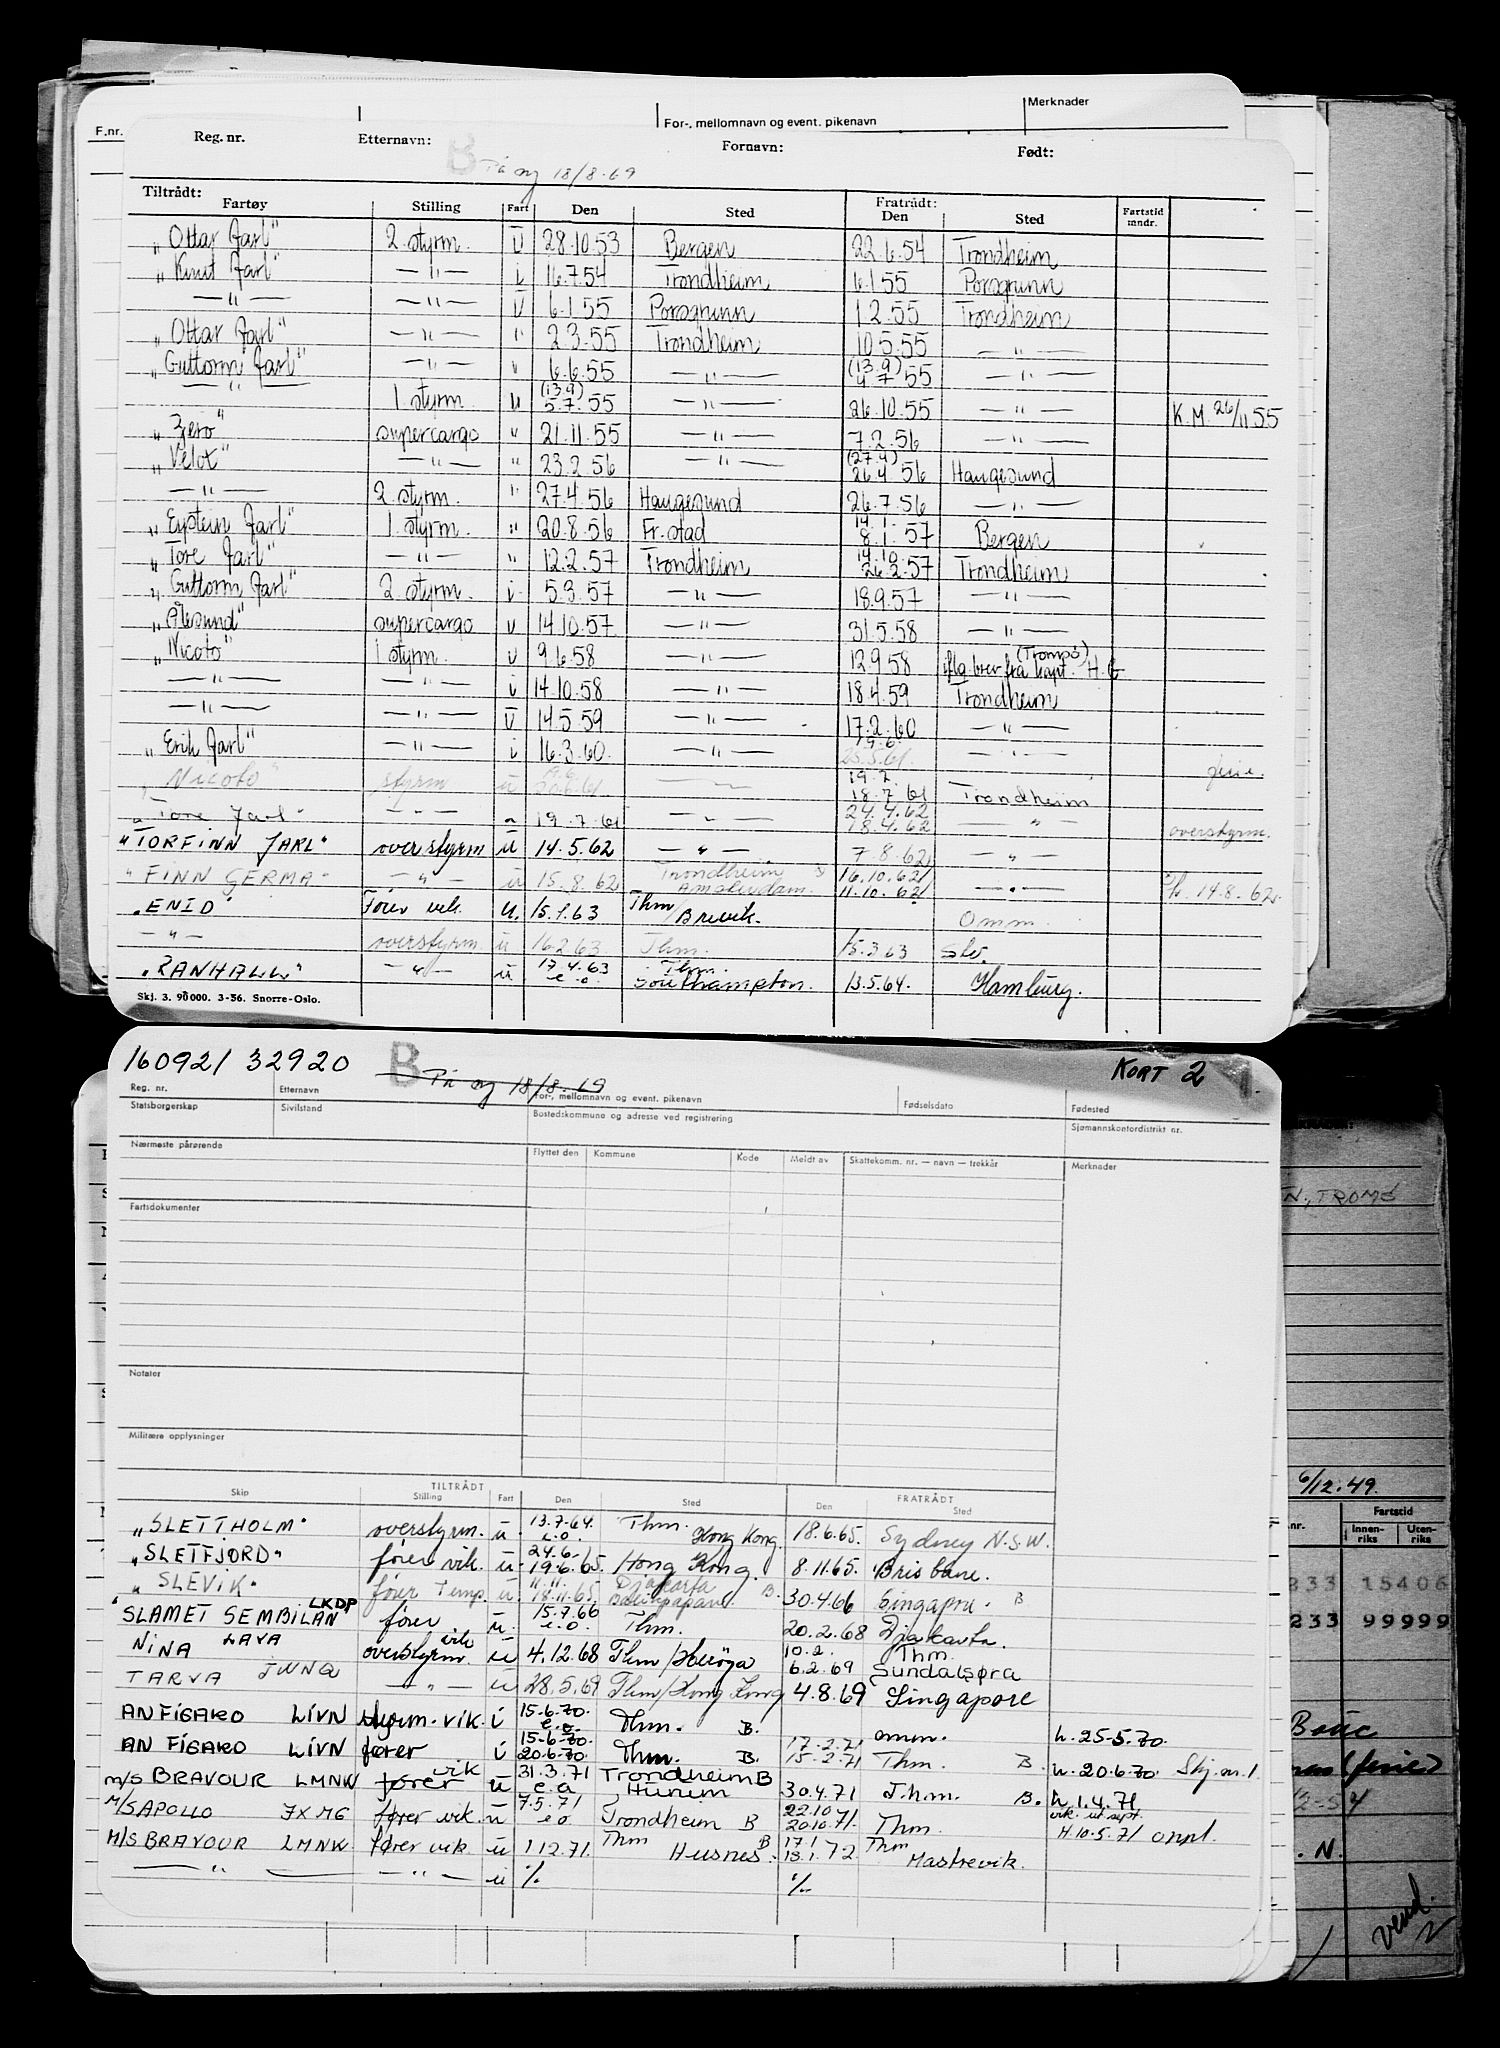 Merknader
F.nr. For-, mellomnavn og event. pikenavn
Reg. nr. Etternavn: Fornavn: Født:
B På ny 18/8-69
Tiltrådt: Fratrådt:
Fartøy Stilling Fart Den Sted Den Sted Fartstid mndr.
„Ottar Jarl" 2. styrm. U 28.10.53 Bergen 22.6.54 Trondheim
„Knut Jarl" —"— i 16.7.54 Trondheim 6.1.55 Porsgrunn
—"— —"— U 6.1.55 Porsgrunn 1.2.55 Trondheim
„Ottar Jarl" —"— " 2.3.55 Trondheim 10.5.55 —"—
„Guttorm Jarl" —"— " 6.6.55 —"— (13.9) 4.7.55 —"—
—"— 1 styrm u (13.9) 5.7.55 —"— 26.10.55 —"— K.M. 26/11 55
„Zero" supercargo " 21.11.55 —"— 7.2.56 —"—
„Velox" —"— " 23.2.56 —"— (27.4) 26.4.56 Haugesund
—"— 2 styrm. " 27.4.56 Haugesund 26.7.56 —"—
„Eystein Jarl" 1 styrm. " 20.8.56 Fr.stad 14.1. 8.1.57 Bergen
„Tore Jarl" —"— " 12.2.57 Trondheim 26.2.57 Trondheim
„Guttorm Jarl" 2 styrm. i 5.3.57 —"— 18.9.57 —"—
„Ålesund" supercargo u 14.10.57 —"— 31.5.58 —"—
„Nicoto" 1 styrm. u 9.6.58 —"— 12.9.58 (Tromsø) iflg. brev fra kapt. H.G
—"— —"— i 14.10.58 —"— 18.4.59 Trondheim
—"— —"— U 14.5.59 —"— 17.2.60 —"—
„Erik Jarl" —"— i 16.3.60. —"— —"—
„Nicoto" styrm u —"— 19.7. 18.7.61 Trondheim ferie.
„Tore Jarl" —"— " 19.7.61 —"— 24.4.62 18.4.62 —"— overstyrm.
"TORFINN JARL" overstyrm u 14.5.62 —"— 7.8.62 —"—
"FINN GERMA" —"— u 15.8.62 Trondheim Amsterdam. 16.10.62 11.10.62 —"— 14.8.62
„ENID" Fører vik. u. 15.1.63 Thm/Brevik. Omm.
—"— overstyrm. u 16.2.63 Thm. 15.3.63
„RANHALL" —"— u 17.4.63 e.o. Thm. Southampton. 13.5.64. Hamburg.
Skj. 3. 90000. 3-56. Snorre-Oslo.
160921 32920 B På ny 18/8-69 KORT 2
Reg. nr. Etternavn For-, mellomnavn og event. pikenavn Fødselsdato Fødested
Statsborgerskap Sivilstand Bostedskommune og adresse ved registrering Sjømannskontordistrikt nr.
Nærmeste pårørende Flyttet den Kommune Kode Meldt av Skattekomm. nr. — navn — trekkår Merknader
N., TROMS
Fartsdokumenter
Notater
Militære opplysninger
6/12.49.
TILTRÅDT FRATRÅDT
Skip Stilling Fart Den Sted Den Sted
Fartstid
nr. Innenriks Utenriks
„SLETTHOLM" overstyrm. u. 13.7.64. e.o. Thm. Hong Kong. 18.6.65. Sydney N.S.W.
„SLETFJORD" fører vik. u. 24.6- 19.6.65. Hong Kong. 8.11.65. Brisbane.
„SLEVIK" fører Temp. u. 11.11. 18.11.65. Djakarta B. 30.4.66 Singapore. B
"SLAMET SEMBILAN LKDP fører u. 15.7.66 e.o. Thm. 20.2.68 Djakarta.
NINA LAVA overstyrm. vik u 4.12.68 Thm/Herøya 10.2. 6.2.69 Thm. Sundalsøra
TARVA JWNQ —"— u 28.5.69 Thm/Hong Kong 4.8.69 Singapore
AN FIGARO LIVN styrm. vik. i 15-6-70. e.o. Thm. B. omm. h. 25-5-70.
AN FIGARO LIVN fører i 15-6-70. 20-6-70. Thm. B. 17-2-71 15-2-71 Thm. B. h. 20.6.70. Skj. m. 1.
M/S BRAVOUR LMNW fører vik u 31.3.71 e.o Trondheim B Hurum 30.4.71 Thm. B. h 1.4.71
M/S APOLLO JXMG fører vik. u 7.5.71 e.o Trondheim B 22.10 20.10.71. Thm. vik. ut sept. H.10.5.71 Onpl.
M/S BRAVOUR LMNW. fører vik u 1.12.71. Thm Husnes. B 17.1 13.1.72 Thm Mastrevik.
—"— —"— u % %
233 15406
233 99999
(ferie)
. N.
vend. 2